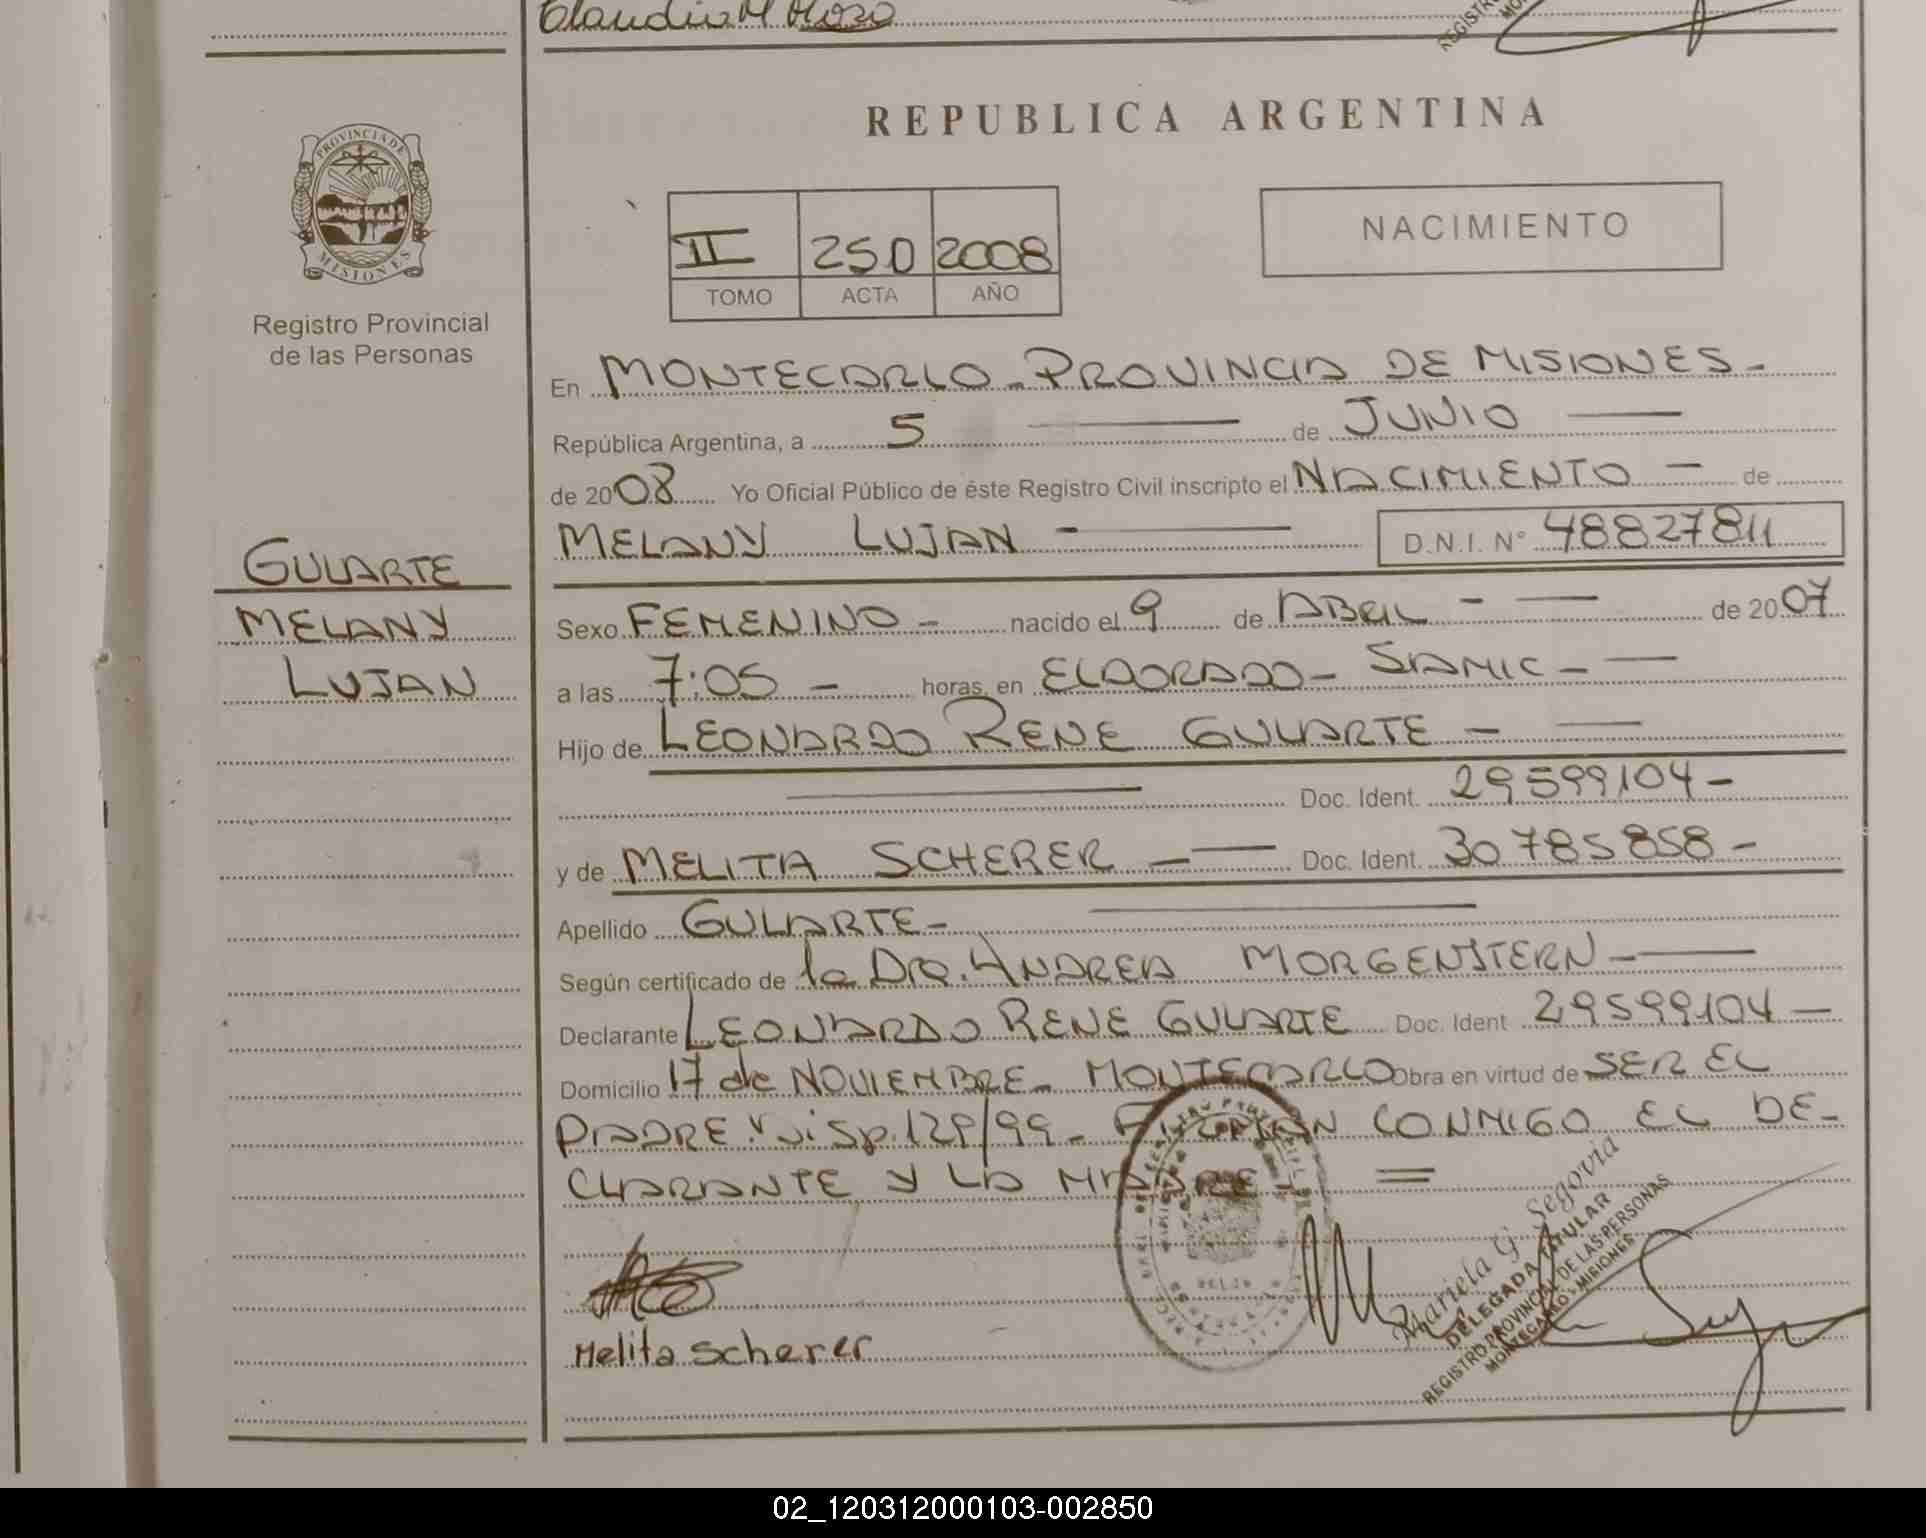 Claudio M Mozo
REPUBLICA ARGENTINA
PROVINCIA DE
MISIONES
Registro Provincial
de las Personas
II 250 2008
TOMO ACTA AÑO
NACIMIENTO
En MONTECARLO - PROVINCIA DE MISIONES -
República Argentina, a 5 de JUNIO
de 2008 Yo Oficial Público de éste Registro Civil inscripto el NACIMIENTO - de
MELANY LUJAN - D.N.I. N° 48827811
GULARTE
MELANY
LUJAN
Sexo FEMENINO - nacido el 9 de ABRIL - de 2007
a las 7:05 - horas, en ELDORADO - SAMIC -
Hijo de LEONARDO RENE GULARTE -
Doc. Ident. 29599104 -
y de MELITA SCHERER - Doc. Ident. 30785858 -
Apellido GULARTE -
Según certificado de la Dra. ANDREA MORGENSTERN -
Declarante LEONARDO RENE GULARTE Doc. Ident 29599104 -
Domicilio 17 de NOVIEMBRE - MONTECARLO Obra en virtud de SER EL
PADRE. Disp. 129/99 - FIRMAN CONMIGO EL DE-
CLARANTE Y LA MADRE =
Melita Scherer
Mariela G. Segovia
DELEGADA TITULAR
REGISTRO PROVINCIAL DE LAS PERSONAS
MONTECARLO - MISIONES
02_120312000103-002850